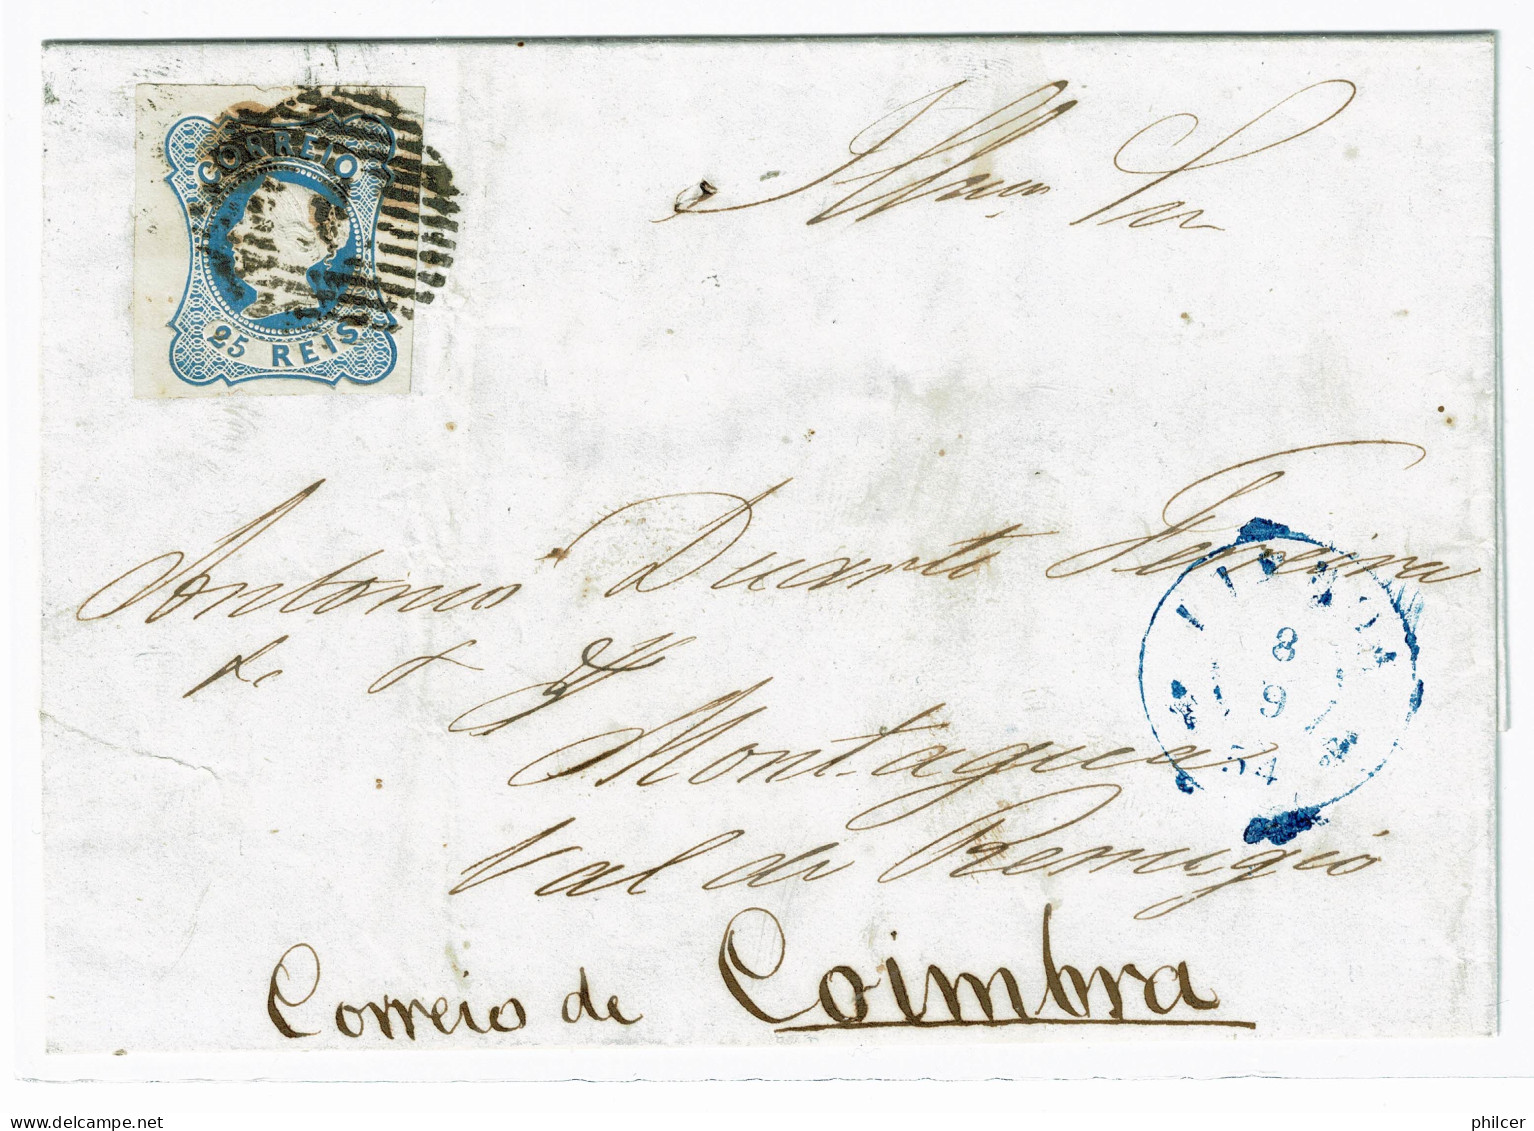 CORREIO
25 REIS
Illmo Snr
Antonio Duarte Ferreira
8
9
54
Montagua
Val de Remigio
Correio de Coimbra
delcampe.net
philcer